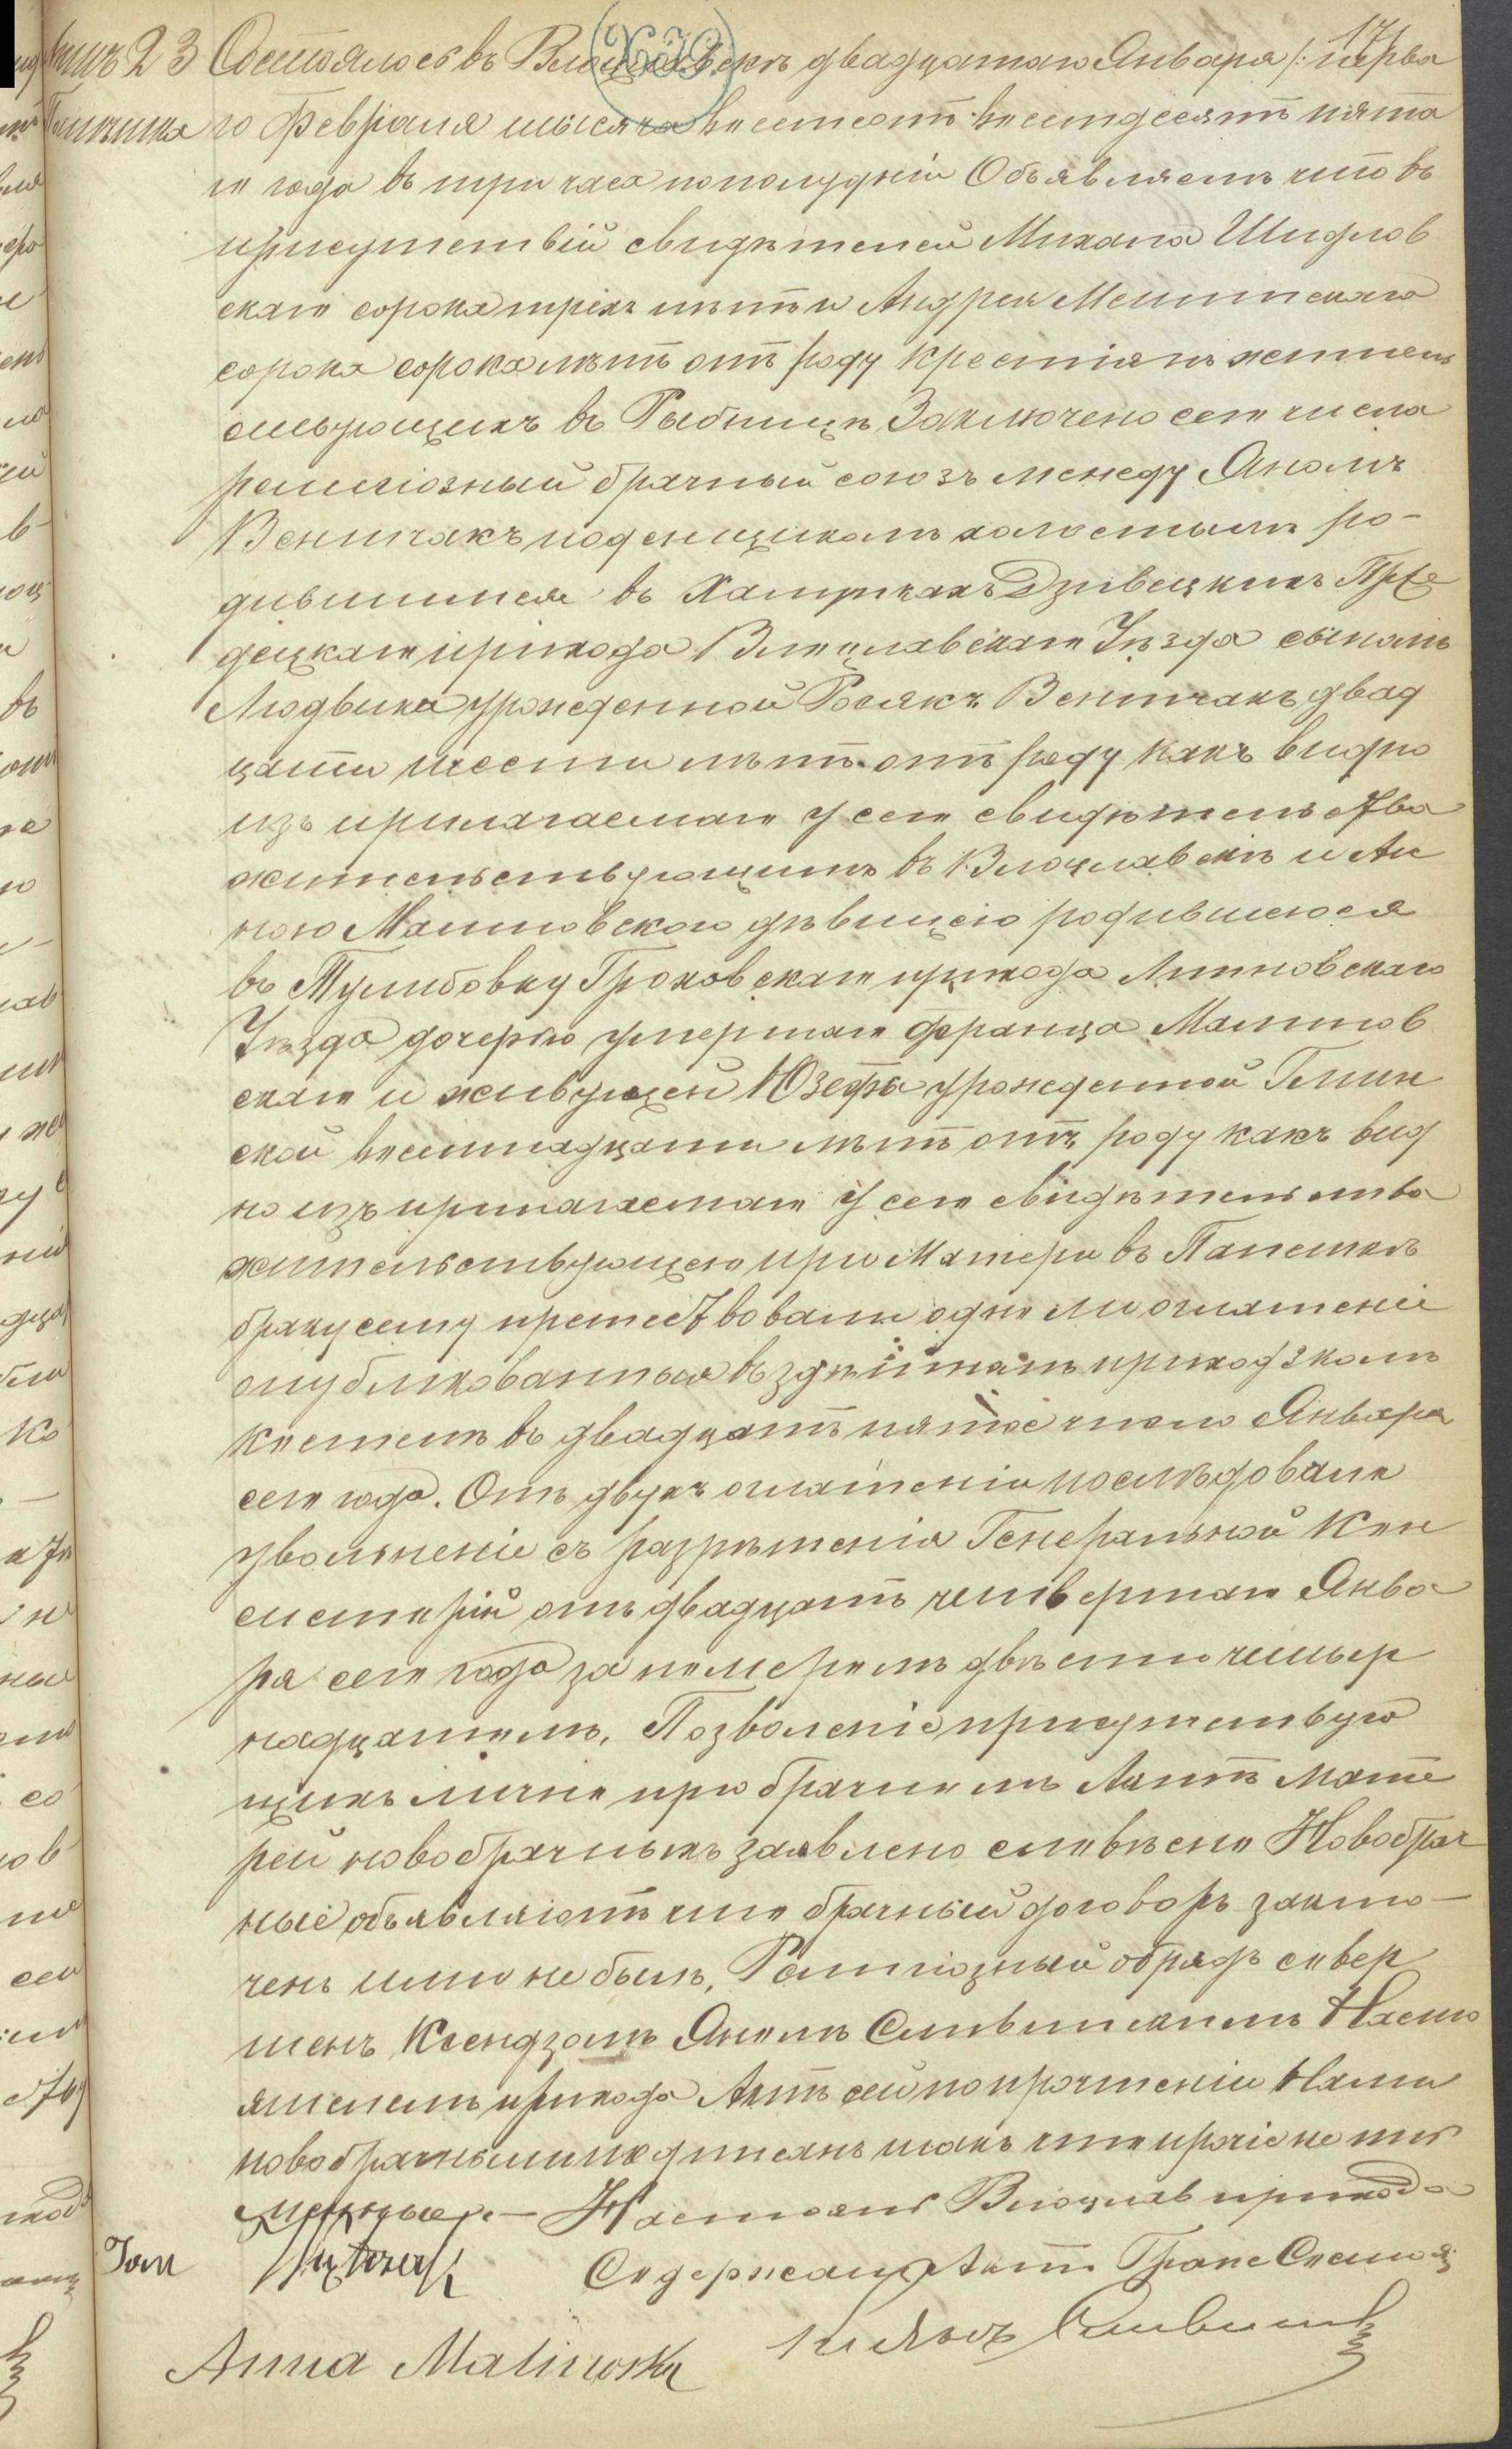 17
№ 23 Состоялось въ Влоцлавскѣ двадцатаго Января /: перва
го Февраля тысяча восемсотъ восемдесятъ пята
го года въ три часа пополудніи Объявляемъ что въ
присутствій свидѣтелей Михала Шидлов
скаго сорока трехъ лѣтъ и Андрея
сорока сорока лѣтъ отъ роду крестіянъ жител
ствующихъ въ Рыбницѣ Заключено сего числа
религіозный брачный союзъ между Яномъ
поденщикомъ холостымъ ро-
дившимся въ
децкаго прихода Влоцлавскаго Уѣзда сыномъ
Людвика урожденной Росякъ двад
цати шести лѣтъ отъ роду какъ видно
изъ прилагаемаго у сего свидѣтельства
жительствующимъ въ Влоцлавскѣ и Ан
ною Малиновскою дѣвицею родившеюся
въ Тулибовку Гроховскаго прихода Липновскаго
Уѣзда дочерью умершаго Франца Малинов
скаго и живущей Юзефы урожденной
ской восемнадцати лѣтъ отъ роду какъ вид
но изъ прилагаемаго у сего свидѣтельства
жительствующею при Матери въ
браку сему предшествовали одно оглашеніе
опубликованныя въ здѣшнемъ приходскомъ
костелѣ въ двадцатъ пятое число Января
сего года. Отъ двухъ оглашеніи последовало
увольненіе съ разрѣшенія Генеральной Кон
систорій отъ двадцатъ четвертаго Янва
ря сего года за номеромъ двѣсти четыр
надцатымъ. Позволеніе присутствую
щихъ лично при брачномъ Актѣ мате
рей новобрачныхъ заявлено словѣсно Новобрач
ные объявляютъ что брачный договоръ заклю-
ченъ ими не былъ. Религіозный обрядъ совер
шенъ Ксендзомъ Яномъ Насто
ятелемъ прихода Актъ сей по прочтеніи Нами
новобрачными подписанъ такъ что прочіе не
Настоят Влоцлав прихода
Jan
Содержащій Акты Гражд Состоя
Anna Malinoska